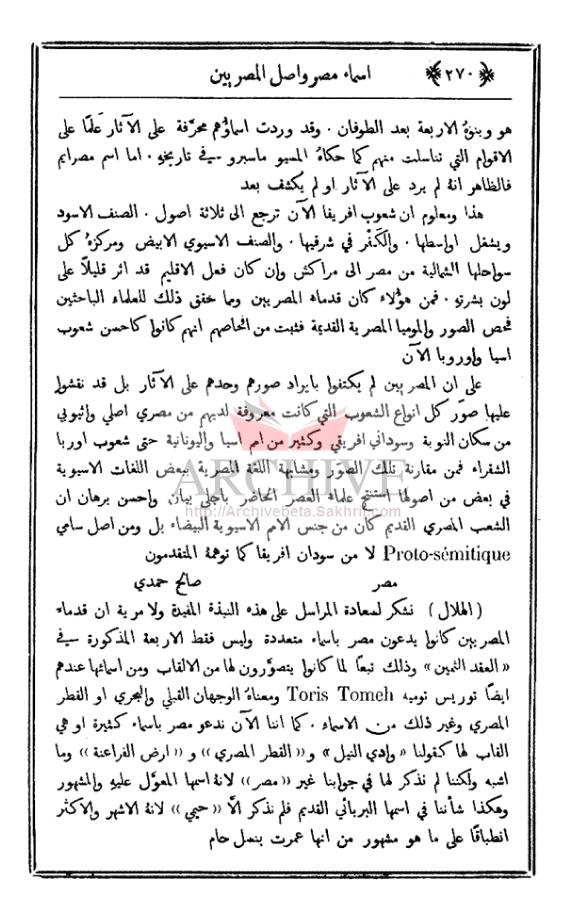 ﴿٢٧٠﴾ اسماء مصر واصل المصريين
هو وبنوهُ الاربعة بعد الطوفان ٠ وقد وردت اسماؤهم محرّفة على الآثار عَلَمًا على
الاقوام التي تناسلت منهم كما حكاهُ المسيو ماسبرو في تاريخهِ ٠ اما اسم مصرايم
فالظاهر انهُ لم يرد على الآثار او لم يكشف بعد
هذا ومعلوم ان شعوب افريقا الآن ترجع الى ثلاثة اصول ٠ الصنف الاسود
ويشغل اواسطها ٠ والكَفْر في شرقيها ٠ والصنف الاسيوي الابيض ومركزهُ كل
سواحلها الشمالية من مصر الى مراكش وإن كان فعل الاقليم قد اثر قليلًا على
لون بشرتهِ ٠ فمن هؤلاء كان قدماء المصريين ومما حقق ذلك للعلماء الباحثين
فحص الصور والموميا المصرية القديمة فثبت من انحاصهم انهم كانوا كاحسن شعوب
اسيا واوروبا الآن
على ان المصريين لم يكتفوا بايراد صورهم وحدهم على الآثار بل قد نقشوا
عليها صوَر كل انواع الشعوب التي كانت معروفة لديهم من مصري اصلي واثيوبي
من سكان النوبة وسوداني افريقي وكثير من امم اسيا واليونانية حتى شعوب اوربا
الشقراء فمن مقارنة تلك الصوَر ومشابهة اللغة المصرية ببعض اللغات الاسيوية
في بعض من اصولها استنتج علماء العصر الحاضر باجلى بيان واحسن برهان ان
الشعب المصري القديم كان من جنس الامم الاسيوية البيضاء بل ومن اصل سامي
Proto-sémitique لا من سودان افريقا كما توهمهُ المتقدمون
مصر صالح حمدي
( الهلال ) نشكر لسعادة المراسل على هذه النبذة المفيدة ولا مرية ان قدماء
المصريين كانوا يدعون مصر باسماء متعددة وليس فقط الاربعة المذكورة في
« العقد الثمين » وذلك تبعًا لما كانوا يتصوّرون لها من الالقاب ومن اسمائها عندهم
ايضًا توريس توميه Toris Tomeh ومعناهُ الوجهان القبلي والبحري او القطر
المصري وغير ذلك من الاسماء ٠ كما اننا الآن ندعو مصر باسماء كثيرة او هي
القاب لها كقولنا « وادي النيل » و « القطر المصري » و « ارض الفراعنة » وما
اشبه ولكننا لم نذكر لها في جوابنا غير « مصر » لانهُ اسمها المعوّل عليهِ والمشهور
وهكذا شأننا في اسمها البربائي القديم فلم نذكر الاَّ « حيمي » لانهُ الاشهر والاكثر
انطباقًا على ما هو مشهور من انها عمرت بنسل حام
ARCHIVE
http://Archivebeta.Sakhrit.com